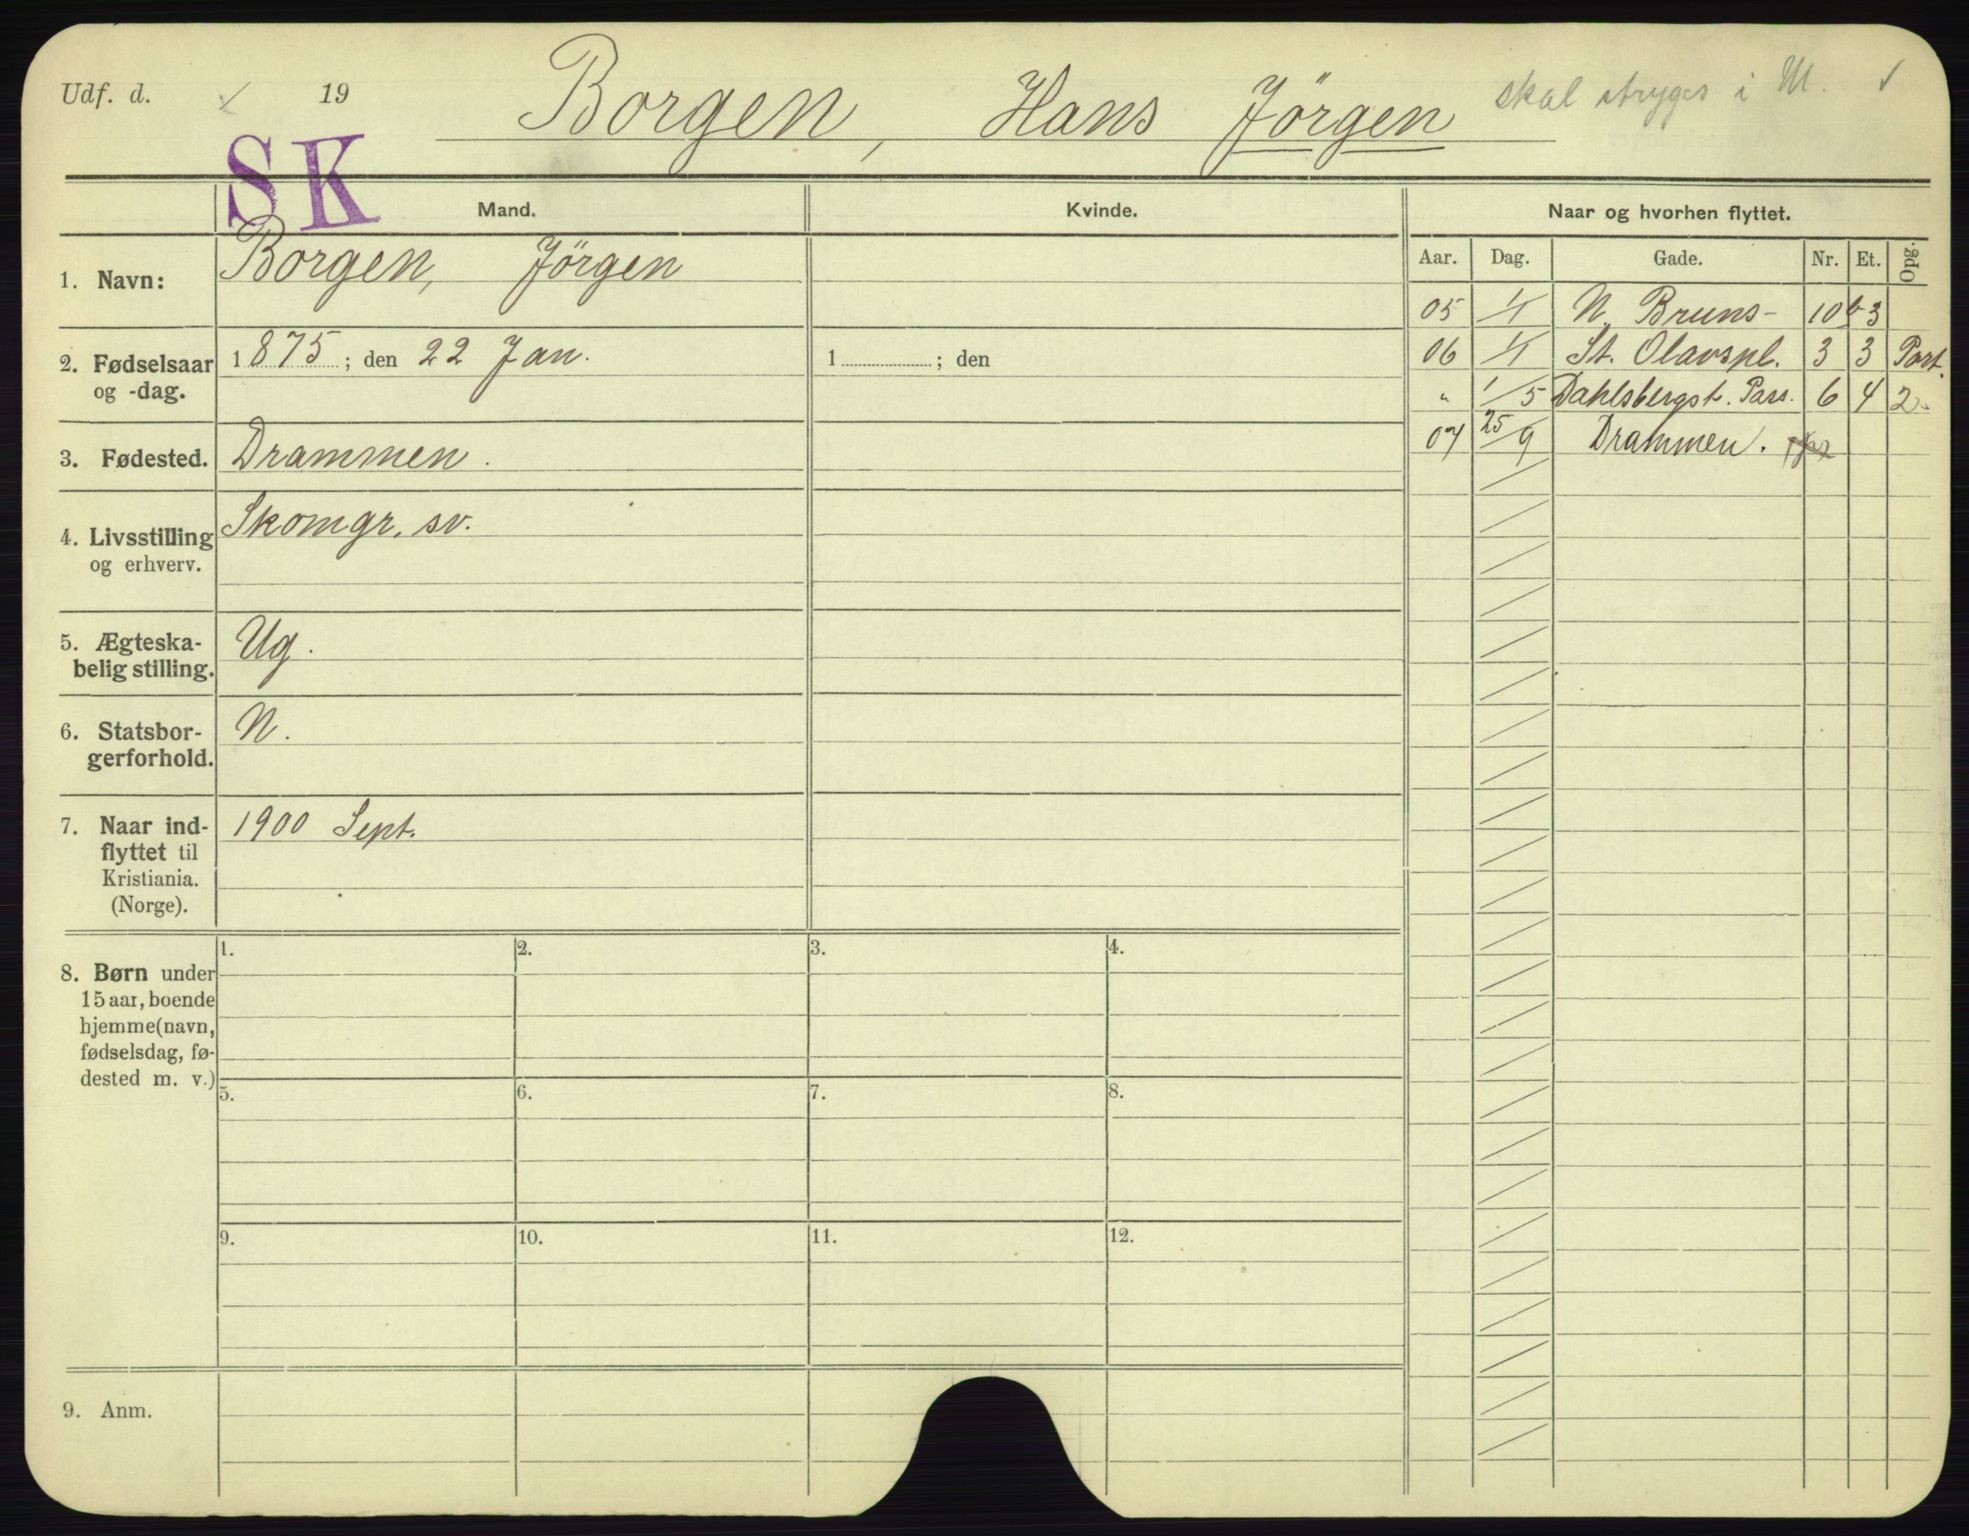 Udf. d. 19
Borgen, Hans Jörgen
skal stryges i M.
SK
Mand.
Kvinde.
Naar og hvorhen flyttet.
Aar. Dag. Gade. Nr. Et. Opg.
1. Navn:
Borgen, Jörgen
2. Fødselsaar
og -dag.
1875; den 22 Jan.
1 ; den
3. Fødested.
Drammen.
4. Livsstilling
og erhverv.
Skomgr. sv.
5. Ægteska-
belig stilling.
Ug.
6. Statsbor-
gerforhold.
N.
7. Naar ind-
flyttet til
Kristiania.
(Norge).
1900 Sept.
05 1/4 N. Bruns- 10b 3
06 1/4 St. Olavspl. 3 3 Port.
" 1/5 Dahlsbergst. Pass. 6 4 2
07 25/9 Drammen.
8. Børn under
15 aar, boende
hjemme (navn,
fødselsdag, fø-
dested m. v.)
1. 2. 3. 4.
5. 6. 7. 8.
9. 10. 11. 12.
9. Anm.